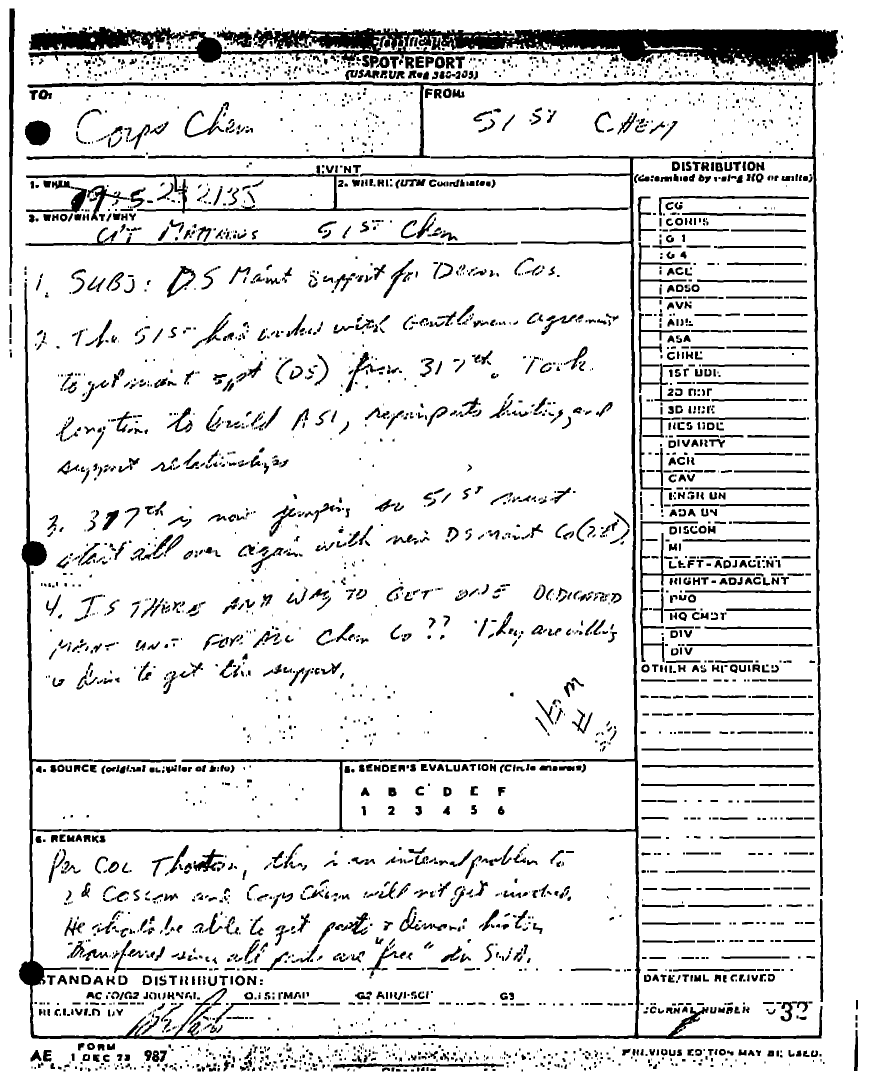 SPOT REPORT
(USAREUR Reg 380-205)
TO:
Corps Chem
FROM:
51ST CHEM
EVENT
1. WHEN
2135
2. WHERE (UTM Coordinates)
3. WHO/WHAT/WHY
51ST Chem
1. SUBJ: DS Maint Support for Decon Cos.
2. The 51ST had worked with Gentlemens agreement
to get maint spt (DS) from 317th. Took
long time to build ASL, repair parts history, and
support relationships
3. 317th is now jumping so 51ST must
start all over again with new DS maint Co
4. IS THERE ANY WAY TO GET ONE DEDICATED
MAINT UNIT FOR ALL Chem Co?? They are willing
to drive to get the support.
4. SOURCE (original supplier of info)
5. SENDER'S EVALUATION (Circle answers)
A B C D E F
1 2 3 4 5 6
6. REMARKS
Per COL this is an internal problem to
2d Coscom and Corps Chem will not get involved.
He should be able to get parts & demand history
transferred since all parts are "free" in SWA.
DISTRIBUTION
(determined by using HQ or units)
CG
CORPS
G 1
G 4
ACL
ADSO
AVN
ADE
ASA
CHRE
1ST BDE
2D BDE
3D BDE
RES BDE
DIVARTY
ACR
CAV
ENGR BN
ADA BN
DISCOM
MI
LEFT-ADJACENT
RIGHT-ADJACENT
PMO
HQ CMDT
DIV
DIV
OTHER AS REQUIRED
STANDARD DISTRIBUTION:
G2 JOURNAL G3 SITMAP G2 AIR G3
RECEIVED BY
DATE/TIME RECEIVED
JOURNAL NUMBER 32
AE FORM 1 DEC 73 987
PREVIOUS EDITION MAY BE USED.